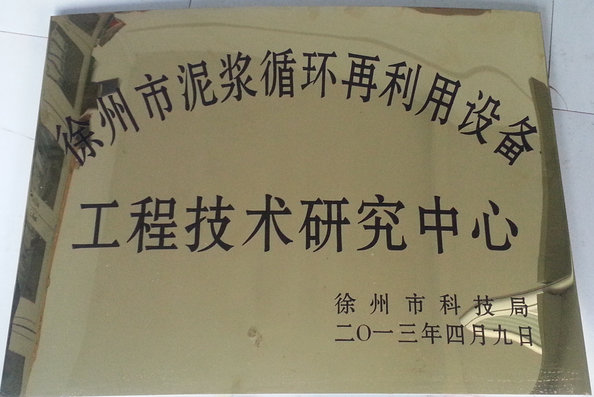 徐州市泥浆循环再利用设备
工程技术研究中心
徐州市科技局
二〇一三年四月九日